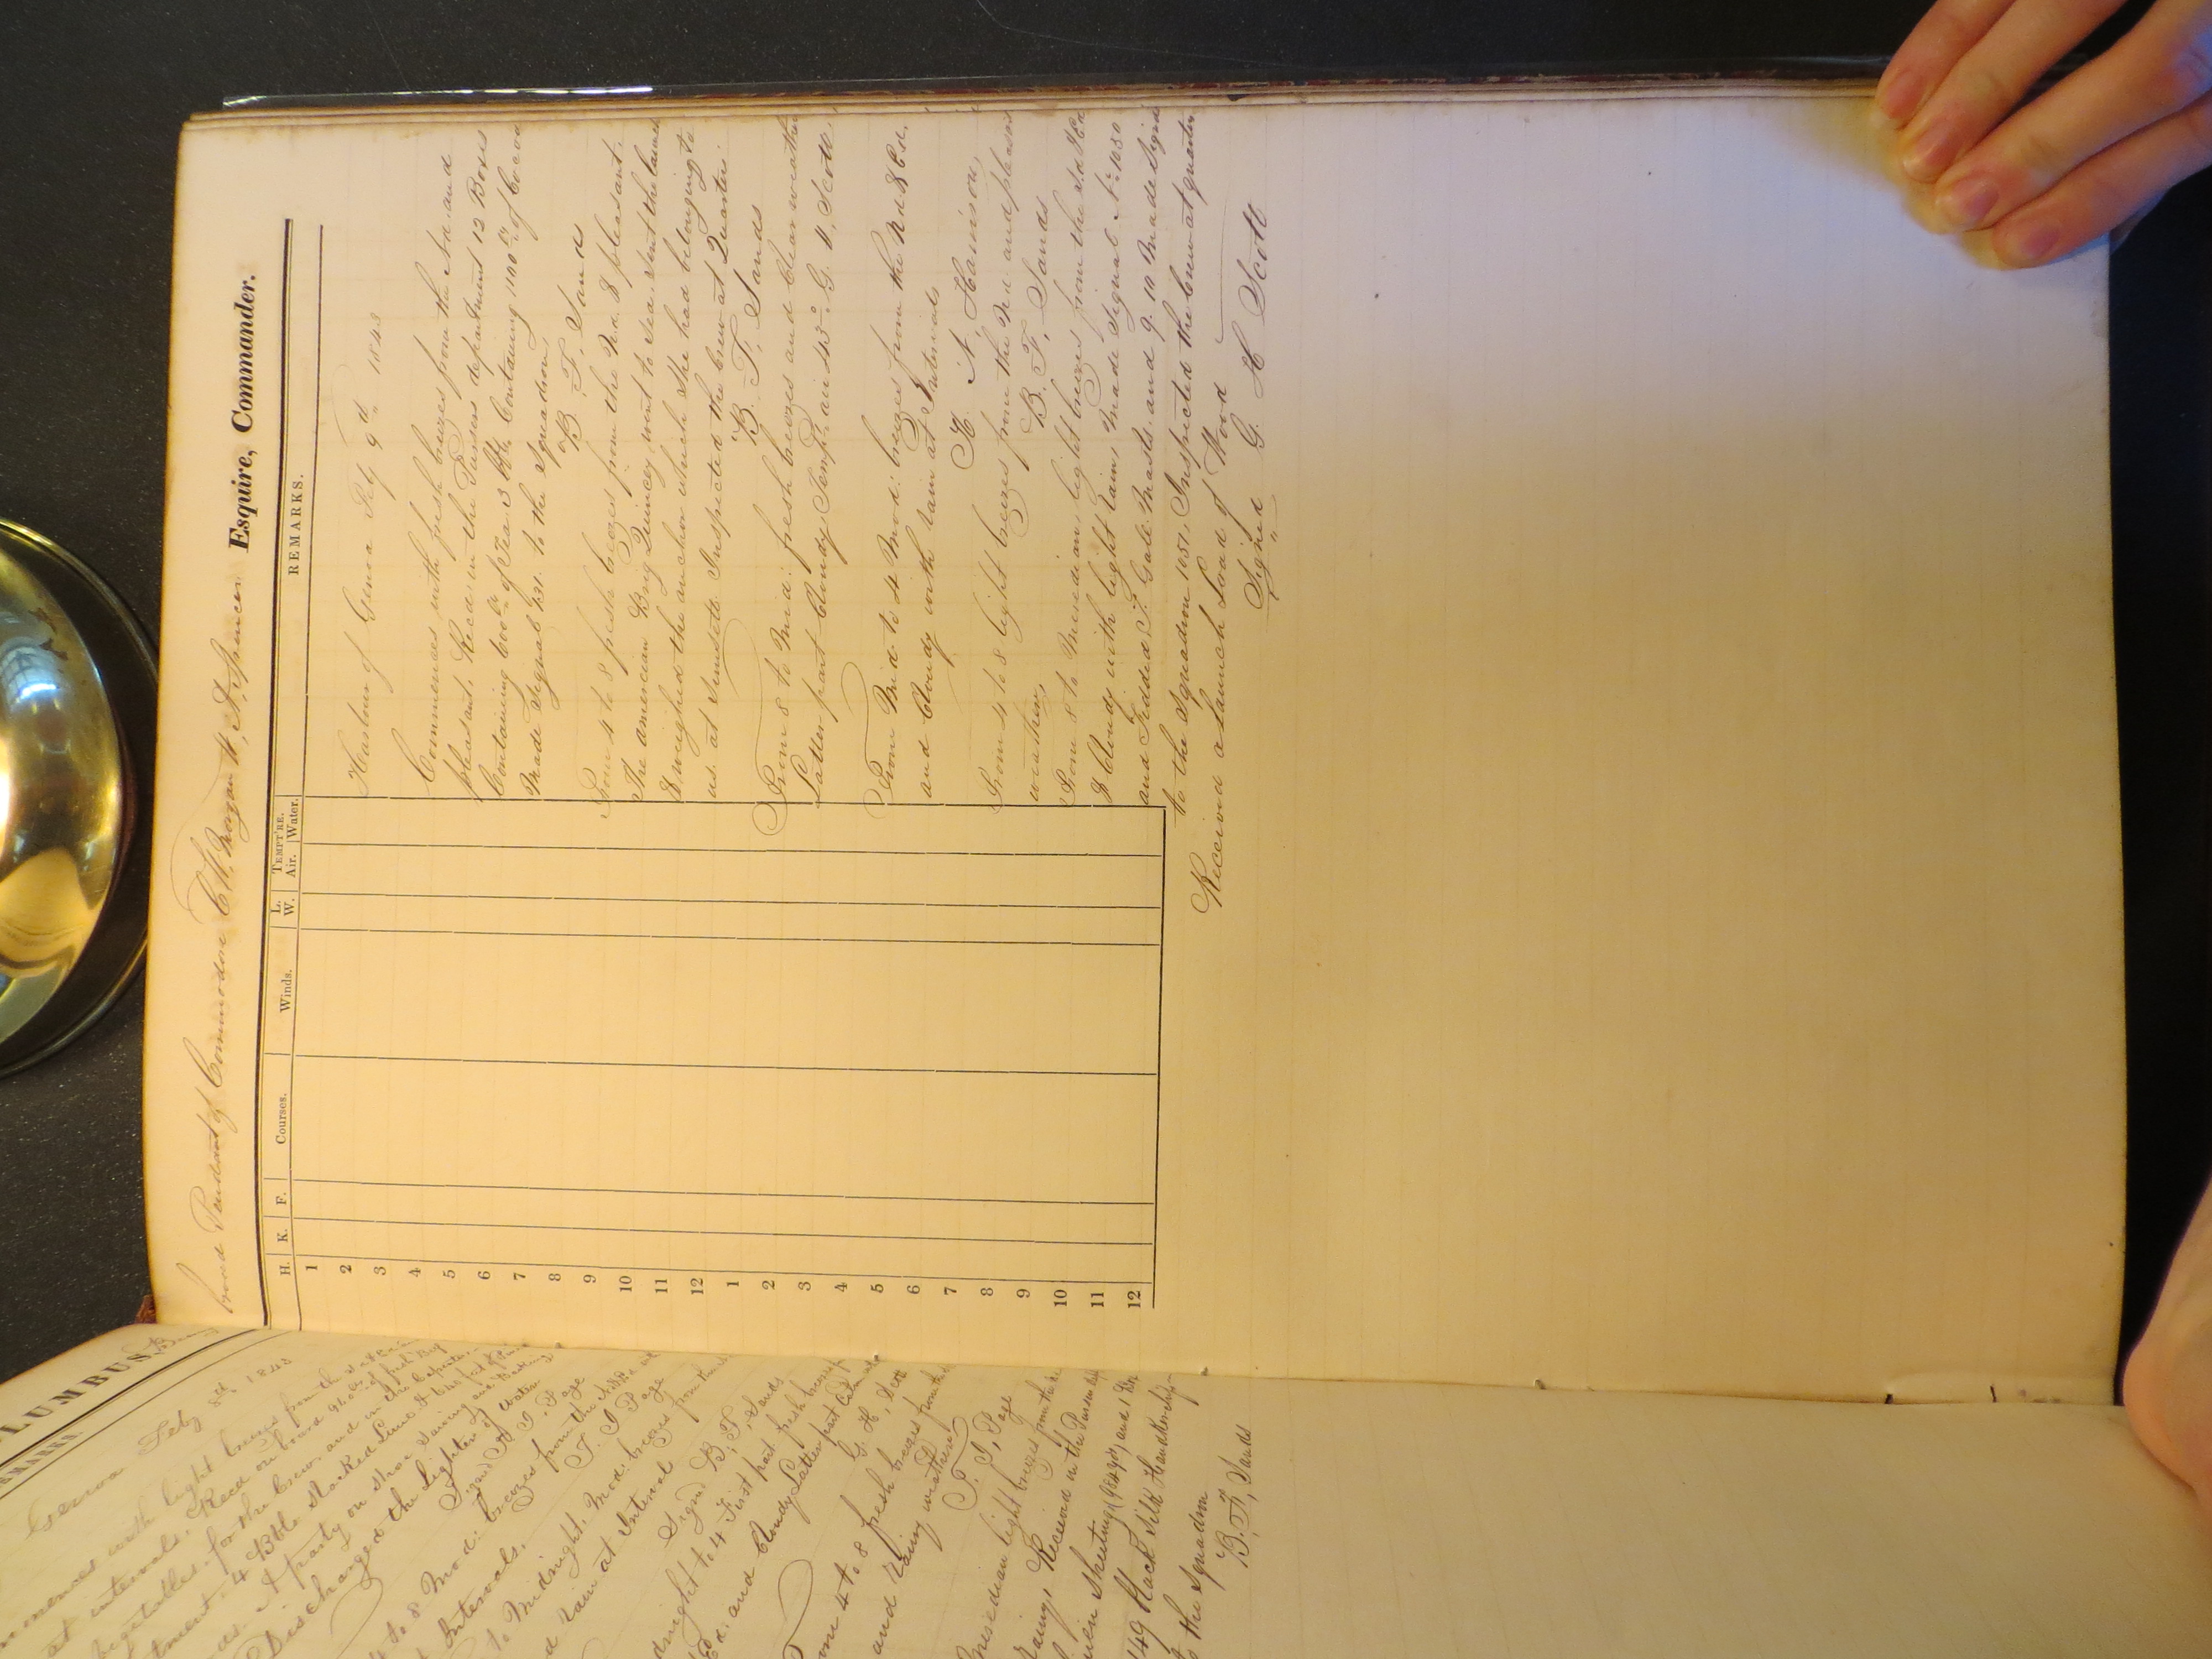 LUMBUS,
REMARKS.
Genoa Feby 8th 1843
mences with light breezes from the
at intervals. Recd on board of fresh Beef
Vegetables for the Crew, and in the
tment. 4 Bbls Slacked Lime &
A party on shore
Discharged the Lighter of Water
Signed T. J. Page
to 8 Mod: breezes from the
Intervals. T. J. Page
to Midnight, Mod: breezes from
rain at Interval
Signed B, F, Sands
dnight to 4 First part fresh breezes
and Cloudy Latter part
G. H, Scott
From 4 to 8 fresh breezes from
and Rainy weather
T. J, Page
Meredian light breezes from the
rainy, Received in the
Sheeting and
149 Black Silk Handkerchip
to the Squadron
B. F, Sands
Broad Pendant of Commodore C. W. Morgan W, A, Spencer Esquire, Commander.
H. K. F. Courses. Winds. L. W. TEMPT'RE. Air. Water. REMARKS.
1
2
3
4
5
6
7
8
9
10
11
12
1
2
3
4
5
6
7
8
9
10
11
12
Harbour of Genoa Feby 9th 1843
Commences with fresh breezes from the Nd. and
pleasant. Recd. in the Pursers department 12 Boxes
Containing 600 lbs of Tea 3 Containing 1100 lbs of Cocoa
Made Signal 731. to the Squadron,
B. F, Sands
From 4 to 8 fresh breezes from the Nd. & pleasant.
The american Brig Quincey went to Sea. Sent the launch
& weighed the anchor which She had belonging to
us. at Sunset. Inspected the Crew at Quarters.
B. F, Sands
From 8 to Mid: fresh breezes and Clear weather
Latter part Cloudy, Temp: air 43° G. H, Scott.
From Mid. to 4 Mod: breezes from the Nd & Ed.
and Cloudy with rain at Intervals,
H. N, Harrison,
From 4 to 8 light breezes from the Nd. and pleasant
weather, B. F, Sands
From 8 to Meredian, light breezes from the Sd & Ed
& Cloudy with light rain, Made Signal No 1050
and Fidded T. Gall. Masts. and 9. 10 Made Signal
to the Squadron 1051, Inspected the Crew at quarters
Received a Launch Load of Wood
Signed G. H Scott